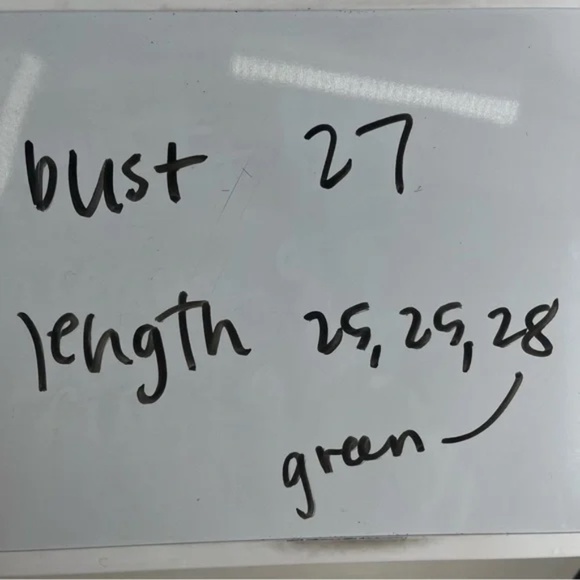 bust 27
length 25, 25, 28
green